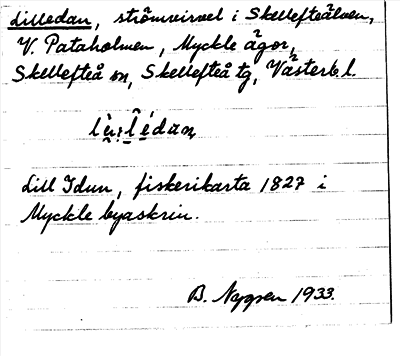 Lilledan, strömvirvel i Skellefteälven,
V. Pataholmen, Myckle ägor,
Skellefteå sn, Skellefteå tg, Västerb. l.
Lill Idun, fiskerikarta 1827 i
Myckle byaskrin.
B. Nygren 1933.